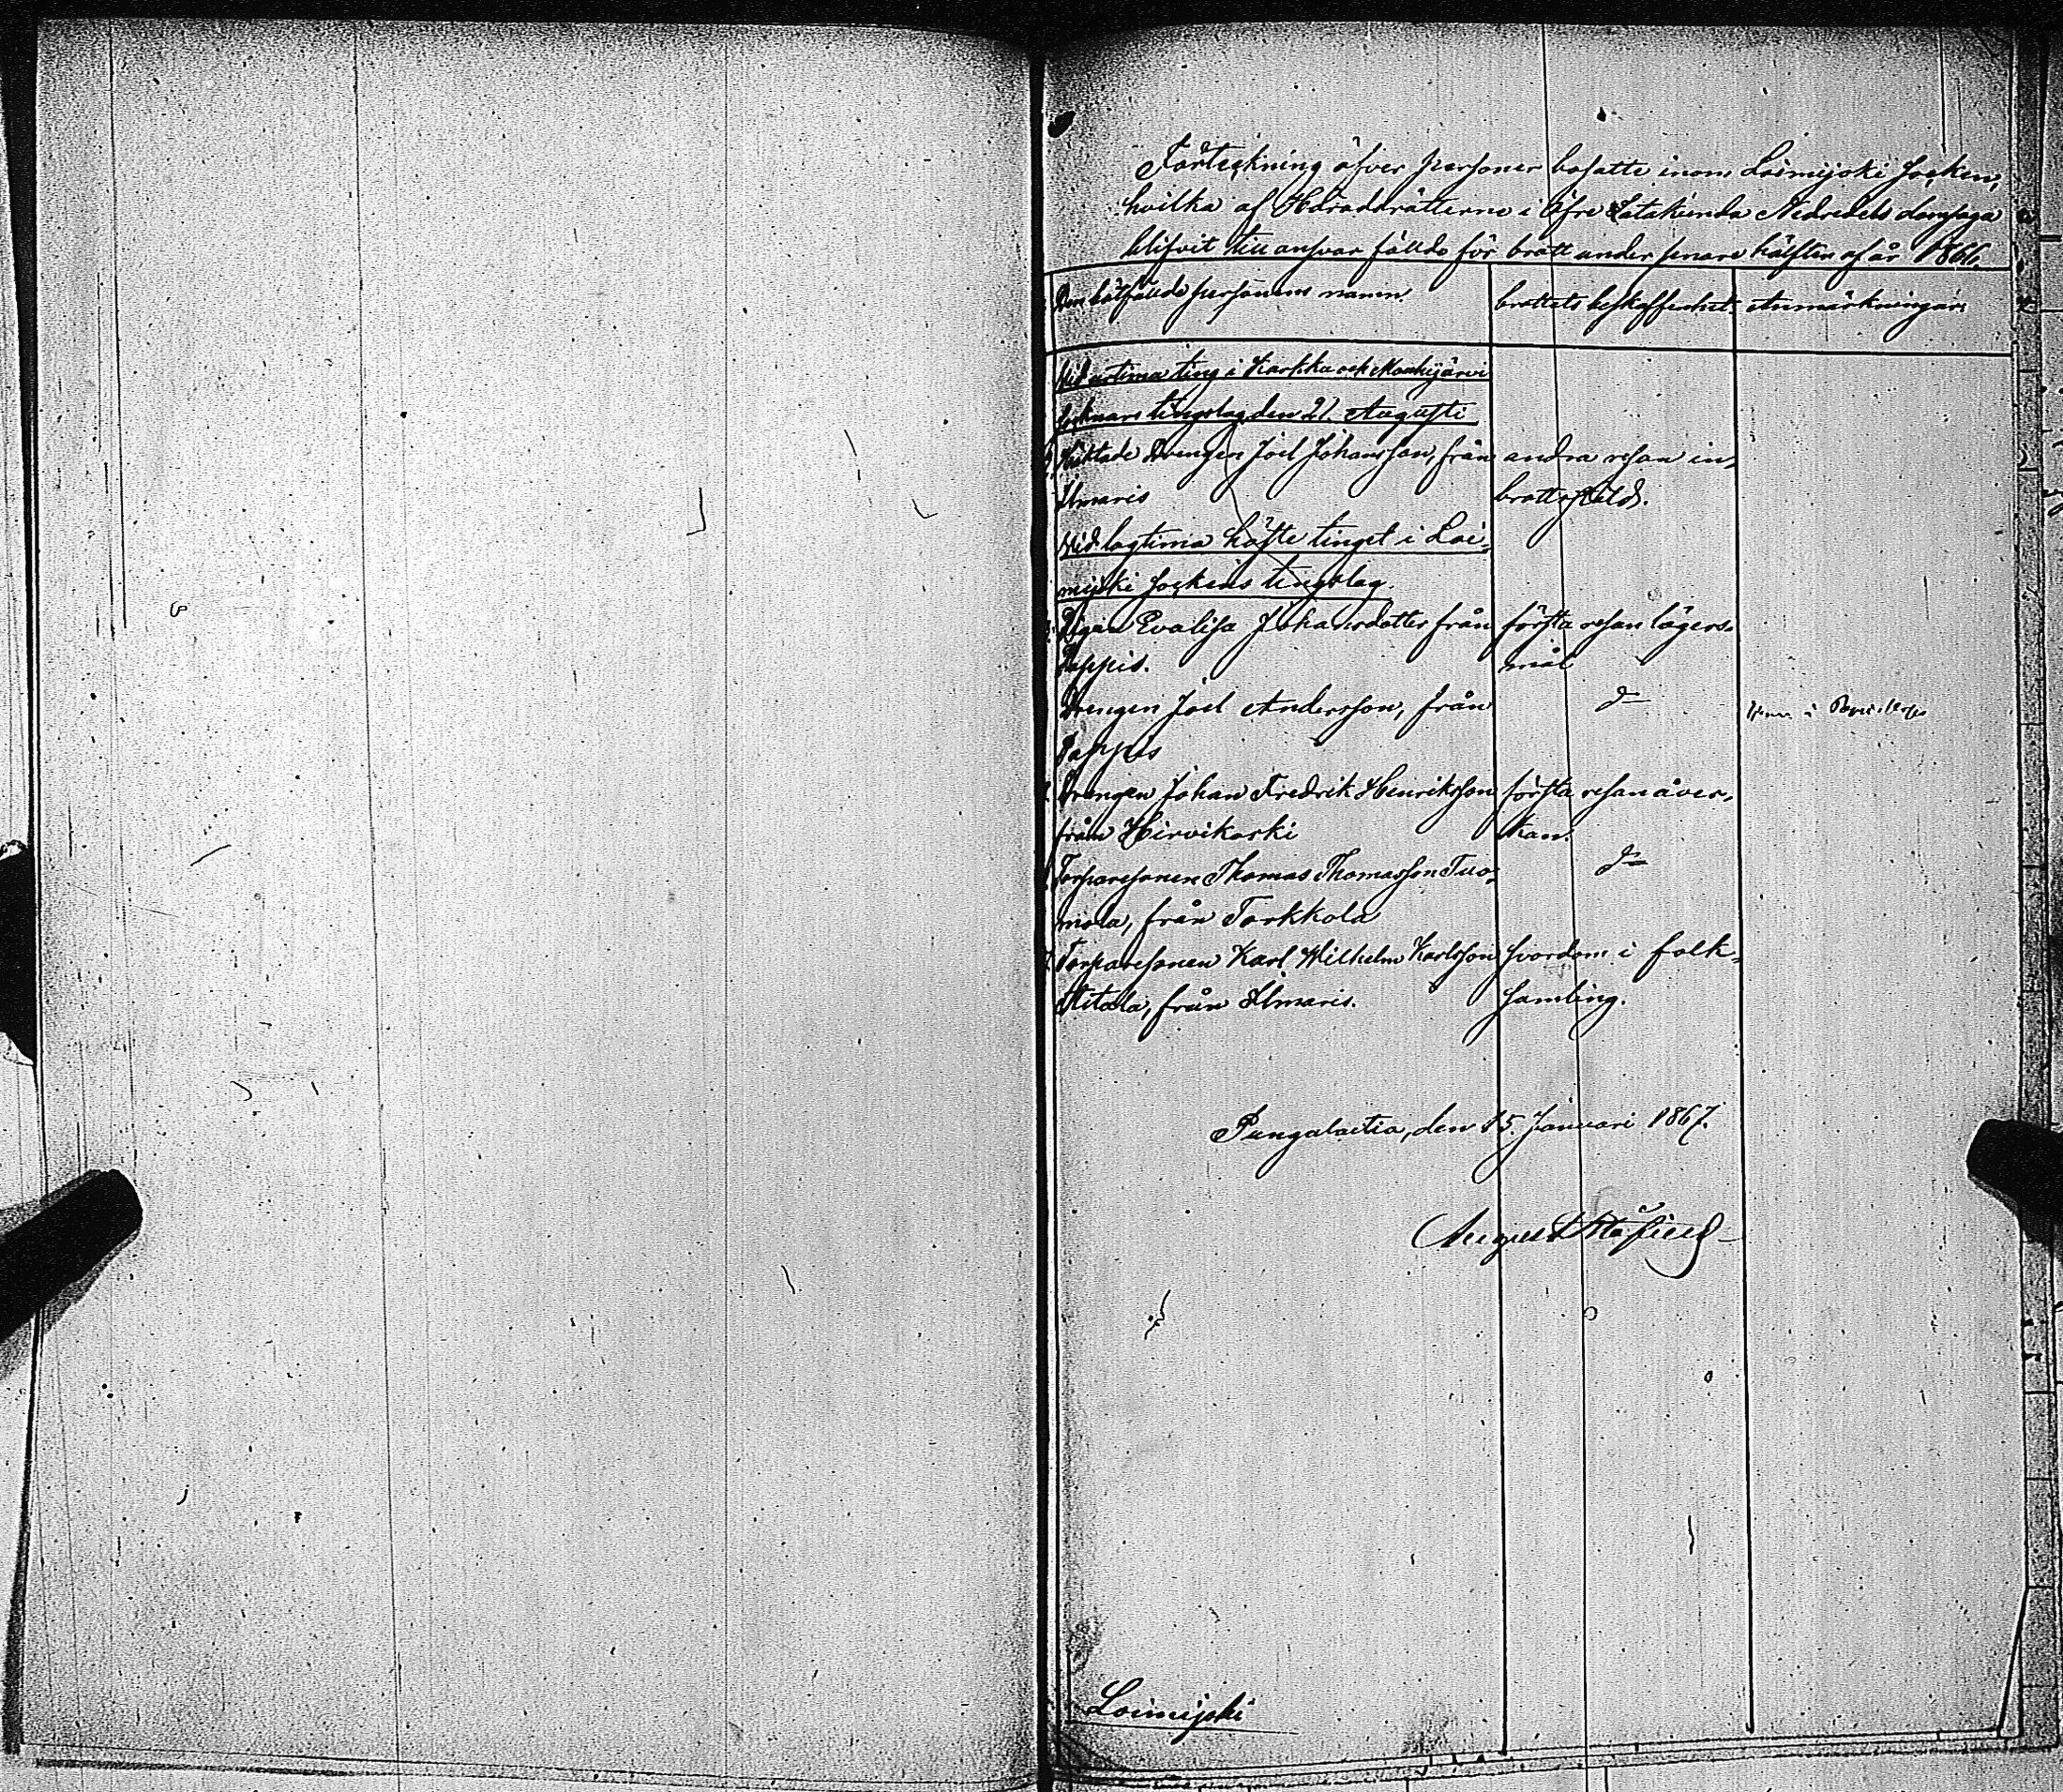 Förteckning öfver personer bosatte inom Loimijoki Socken,
hvilka af Häradsrätterne i Öfre Satakunda Nedredels domsaga
blifvit till ansvar fällde för brott under senare hälften af år 1866.
Den sakfällde personens namn. brottets beskaffenhet. Anmärkningar.
Vid urtima ting i Karkku och Mouhijärvi
socknars tingslag den 21 Augusti
Häktade Drengen Joel Johansson, från andra resan in-
Ilmaris brottsstöld.
Vid lagtima höste tinget i Loi-
mijoki Sockens tingslag.
Pigan Evalisa Johansdotter från första resan lägers-
Pappis. mål
Drengen Joel Andersson, från do
Pappis
Drengen Johan Fredrik Henriksson första resan åver-
från Hirvikoski kan.
Torparesonen Thomas Thomasson Tuo- do
mola, från Torkkola
Torparesonen Karl Wilhelm Karlsson svordom i folk-
från Ilmaris. samling.
Pungalaitio, den 15 Januari 1867.
August
Loimijoki